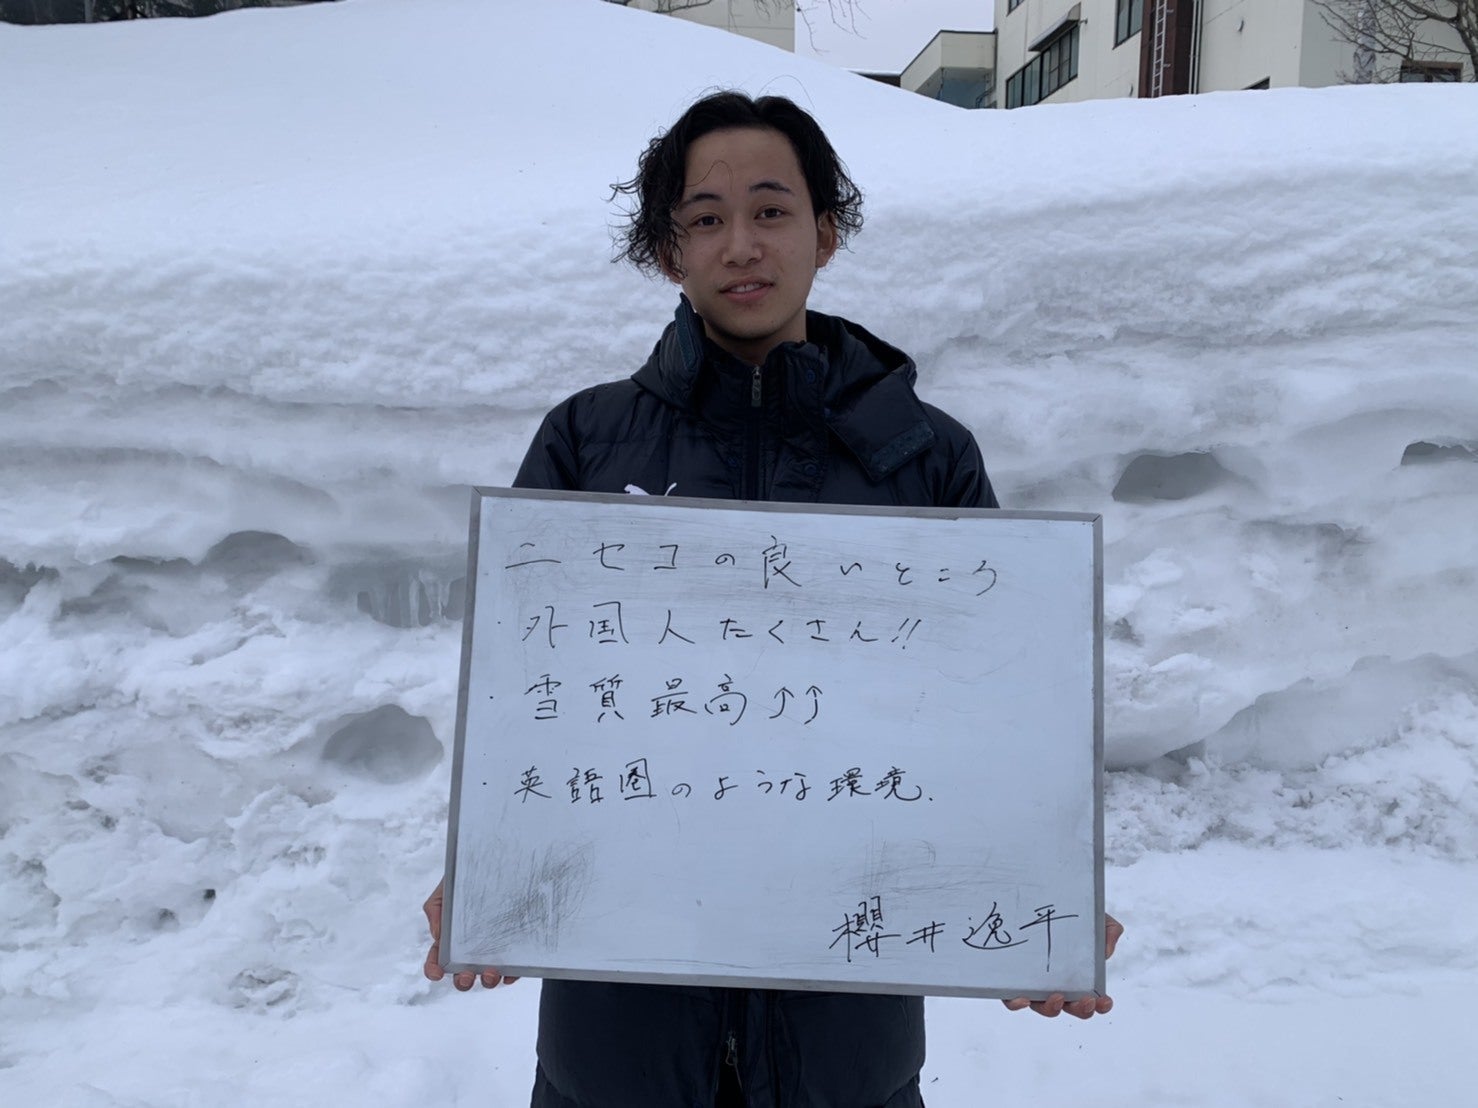 ニセコの良いところ
・外国人たくさん!!
・雪質最高↑↑
・英語圏のような環境.
櫻井逸平